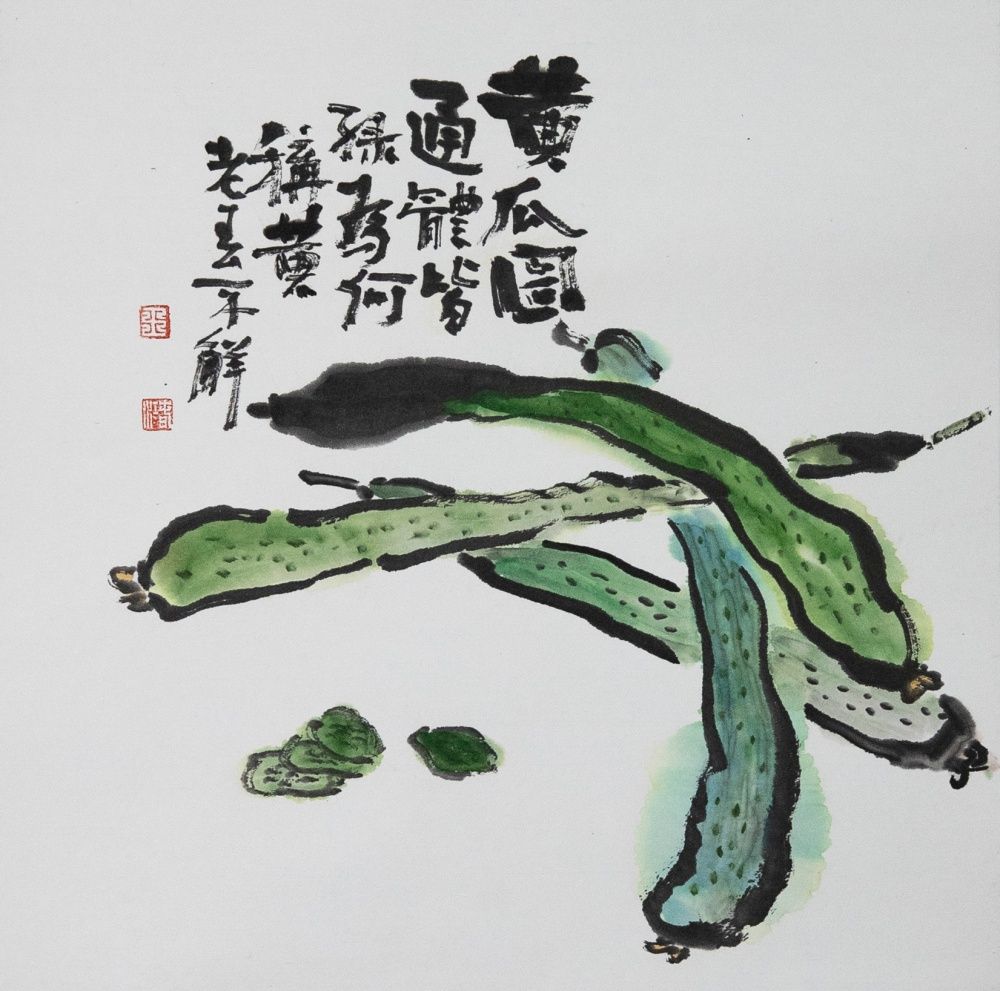 黄瓜圖
通體皆
綠為何
稱黄
老不解